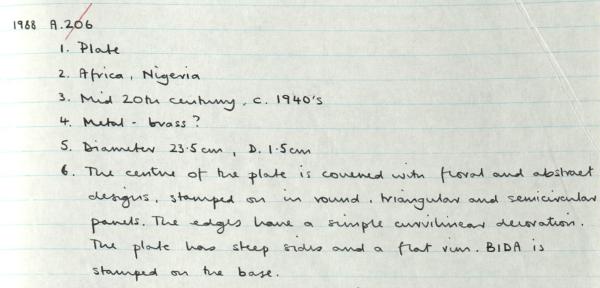 1988 A.206
1. Plate
2. Africa, Nigeria
3. Mid 20th century, c. 1940's
4. Metal - brass?
5. Diameter 23.5cm, D. 1.5cm
6. The centre of the plate is covered with floral and abstract
designs, stamped on in round, triangular and semicircular
panels. The edges have a simple curvilinear decoration.
The plate has steep sides and a flat rim. BIDA is
stamped on the base.